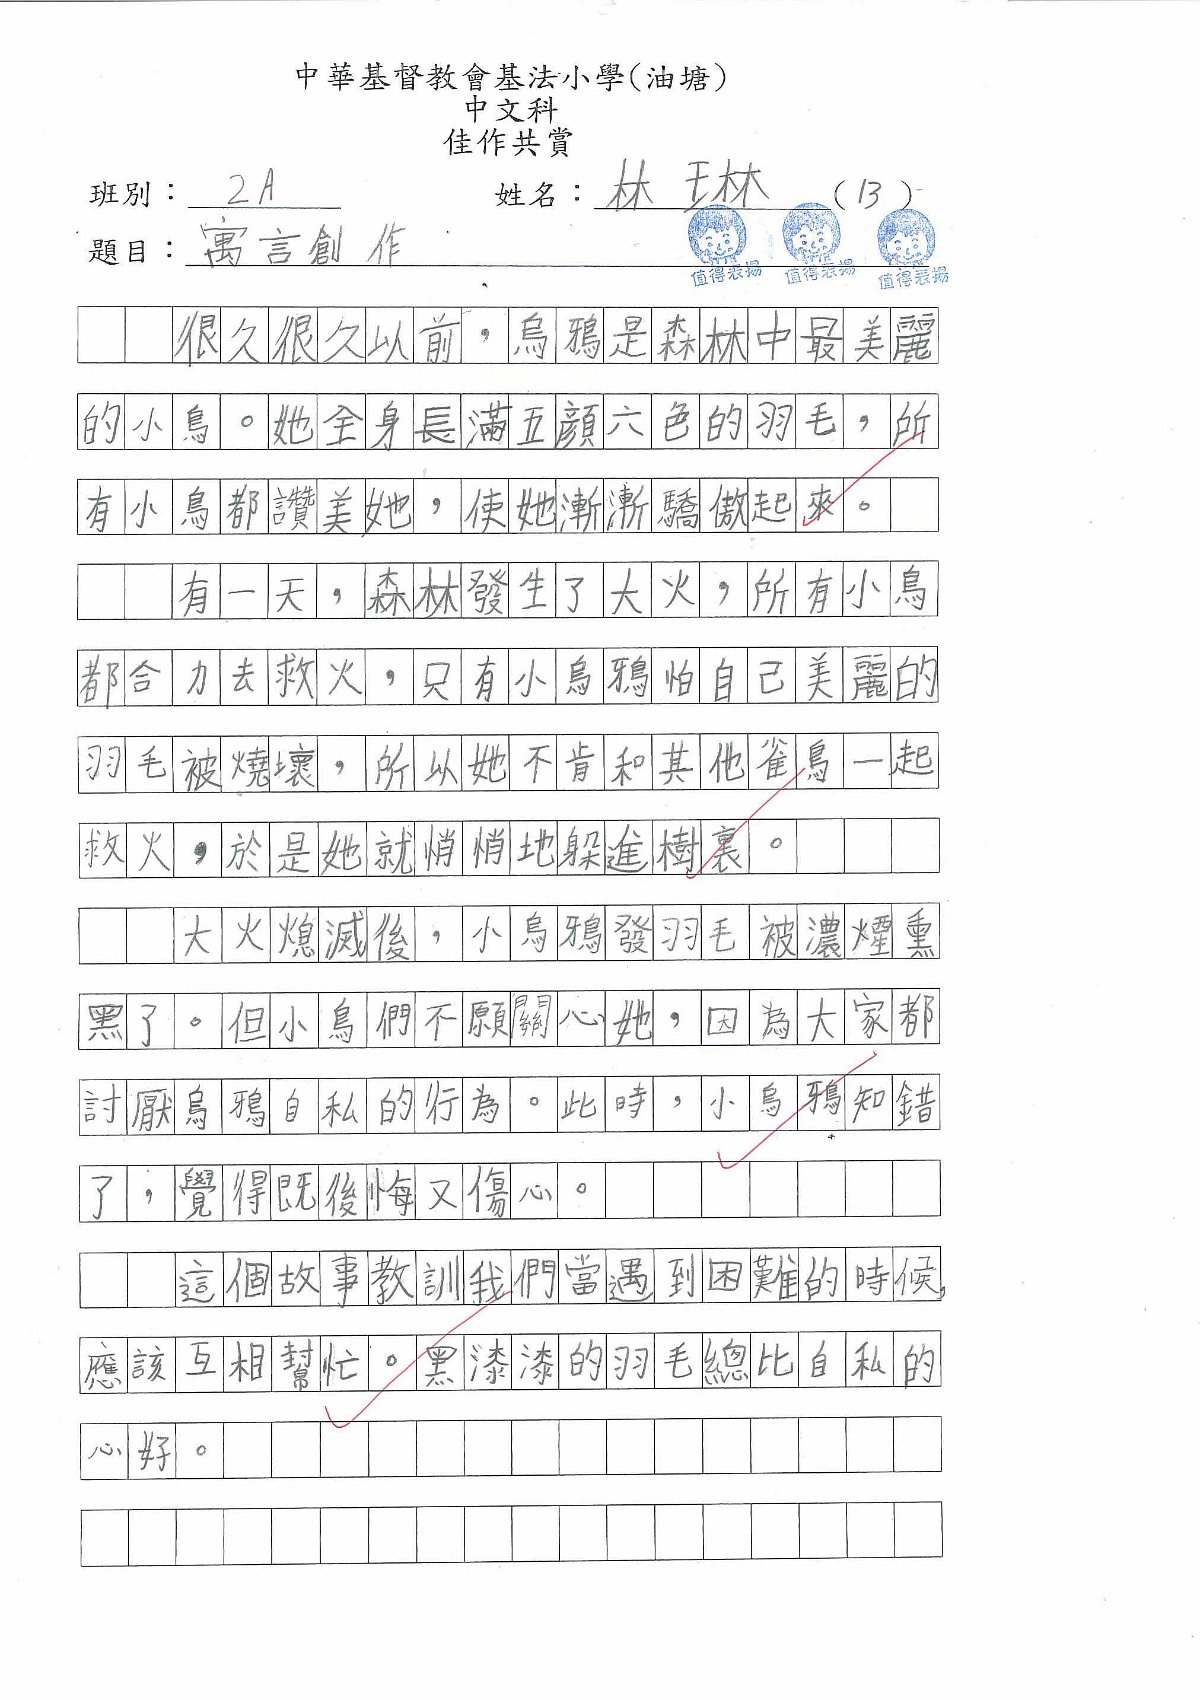 中華基督教會基法小學(油塘)
中文科
佳作共賞
班別：2A 姓名：林 琳 (13)
題目：寓言創作
值得表揚 值得表揚 值得表揚
很久很久以前，烏鴉是森林中最美麗
的小鳥。她全身長滿五顏六色的羽毛，所
有小鳥都讚美她，使她漸漸驕傲起來。
有一天，森林發生了大火，所有小鳥
都合力去救火，只有小烏鴉怕自己美麗的
羽毛被燒壞，所以她不肯和其他雀鳥一起
救火，於是她就悄悄地躲進樹裏。
大火熄滅後，小烏鴉發羽毛被濃煙熏
黑了。但小鳥們不願關心她，因為大家都
討厭烏鴉自私的行為。此時，小烏鴉知錯
了，覺得既後悔又傷心。
這個故事教訓我們當遇到困難的時候，
應該互相幫忙。黑漆漆的羽毛總比自私的
心好。